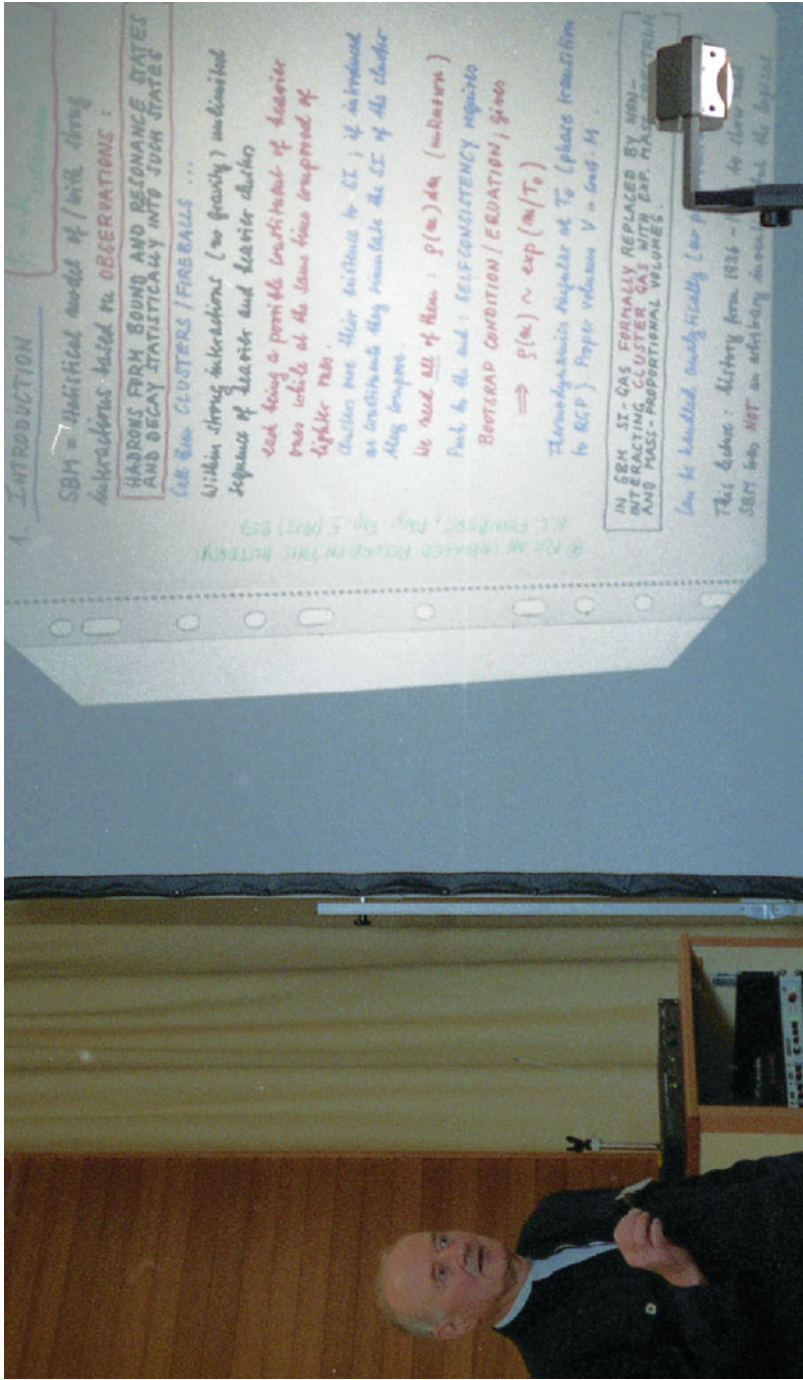 1. INTRODUCTION
SBM = Statistical model of / with strong
interactions based on OBSERVATIONS :
HADRONS FORM BOUND AND RESONANCE STATES
AND DECAY STATISTICALLY INTO SUCH STATES
Call them CLUSTERS / FIREBALLS ...
Within strong interactions (no gravity) unlimited
sequence of heavier and heavier clusters
each being a possible constituent of heavier
ones while at the same time composed of
lighter ones.
Clusters owe their existence to SI ; if introduced
as constituents they simulate the SI of the cluster
they compose.
We need all of them : ρ(m)dm (unknown)
Push to the end : SELFCONSISTENCY requires
BOOTSTRAP CONDITION / EQUATION ; gives
⟹ ρ(m) ~ exp (m/T₀)
Thermodynamics singular at T₀ (phase transition
to QGP) Proper volumes V = const. M.
IN SBM SI-GAS FORMALLY REPLACED BY NON-
INTERACTING CLUSTER GAS WITH EXP. MASS SPECTRUM
AND MASS-PROPORTIONAL VOLUMES.
Can be handled analytically (no
This lecture : history from 1936 - to show that
SBM was NOT an arbitrary but the logical
FOR AN UNBIASED RECORD ON THIS HISTORY:
E.L. FEINBERG, Phys. Rep 5 (1972) 237